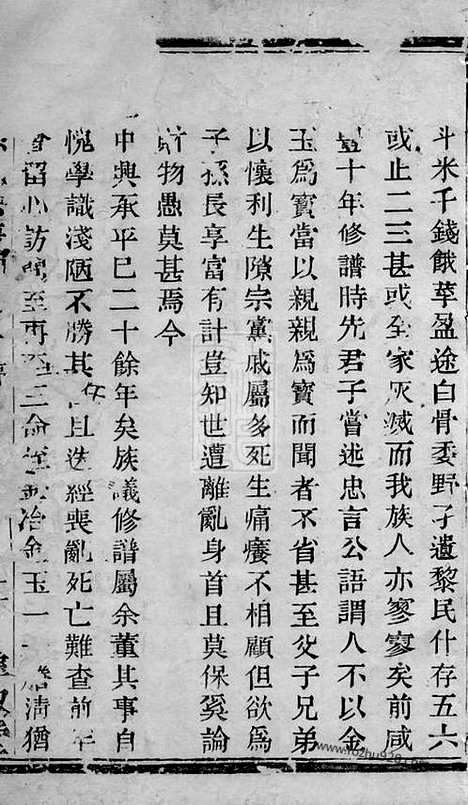 斗米千錢餓莩盈途白骨委野孑遺黎民什存五六
或止二三甚或至家灰滅而我族人亦寥寥矣前咸
豐十年修譜時先君子嘗述忠言公語謂人不以金
玉爲寶當以親親爲寶而聞者不省甚至父子兄弟
以懷利生隙宗黨戚屬多死生痛癢不相顧但欲爲
子孫長享富有計豈知世遭離亂身首且莫保奚論
財物愚莫甚焉今
中興承平已二十餘年矣族議修譜屬余董其事自
愧學識淺陋不勝其任且迭經喪亂死亡難查前年
曾留心訪問至再至三命 冶金玉一 清猶